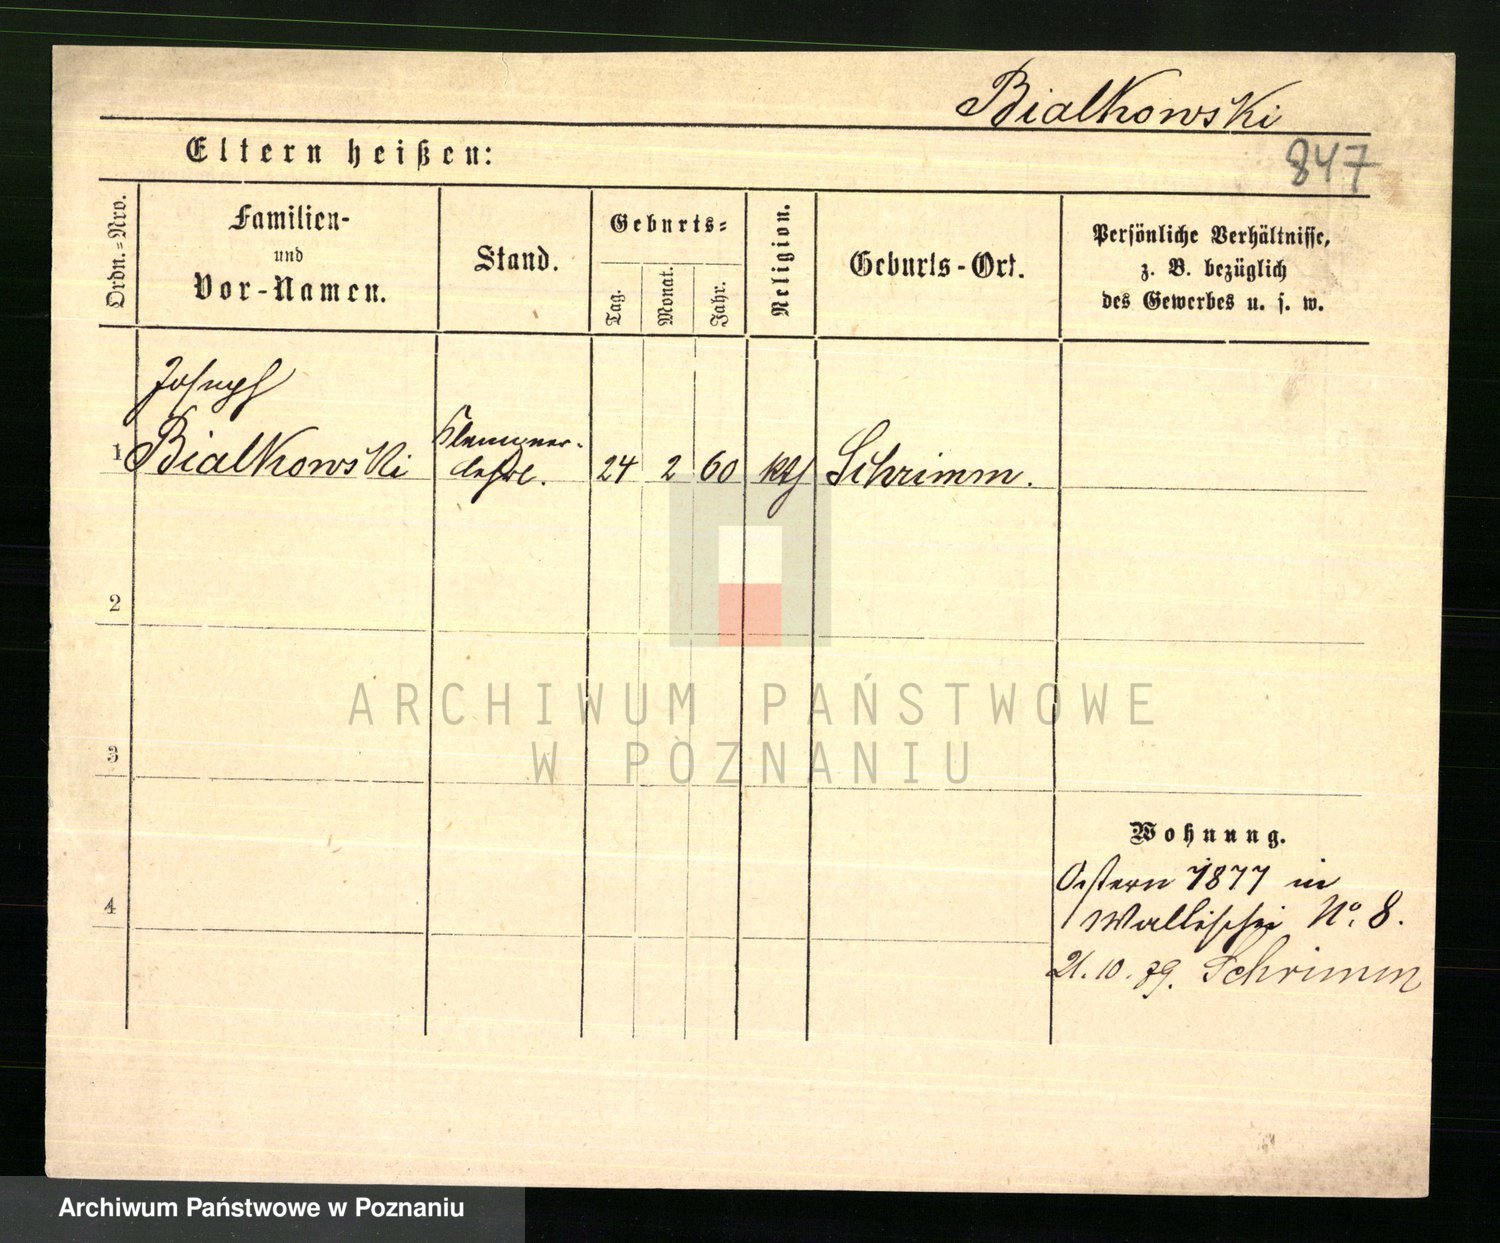 Bialkowski
847
Eltern heißen:
Ordn.-Nro.
Familien-
und
Vor-Namen.
Stand.
Geburts-
Tag.
Monat.
Jahr.
Religion.
Geburts-Ort.
Persönliche Verhältnisse,
z. B. bezüglich
des Gewerbes u. s. w.
Joseph
1 Bialkowski
Klempner-
24 2 60 kth Schrimm.
2
ARCHIWUM PAŃSTWOWE
W POZNANIU
3
Wohnung.
Ostern 1877 in
4
Wallischei No. 8.
21.10.79. Schrimm
Archiwum Państwowe w Poznaniu